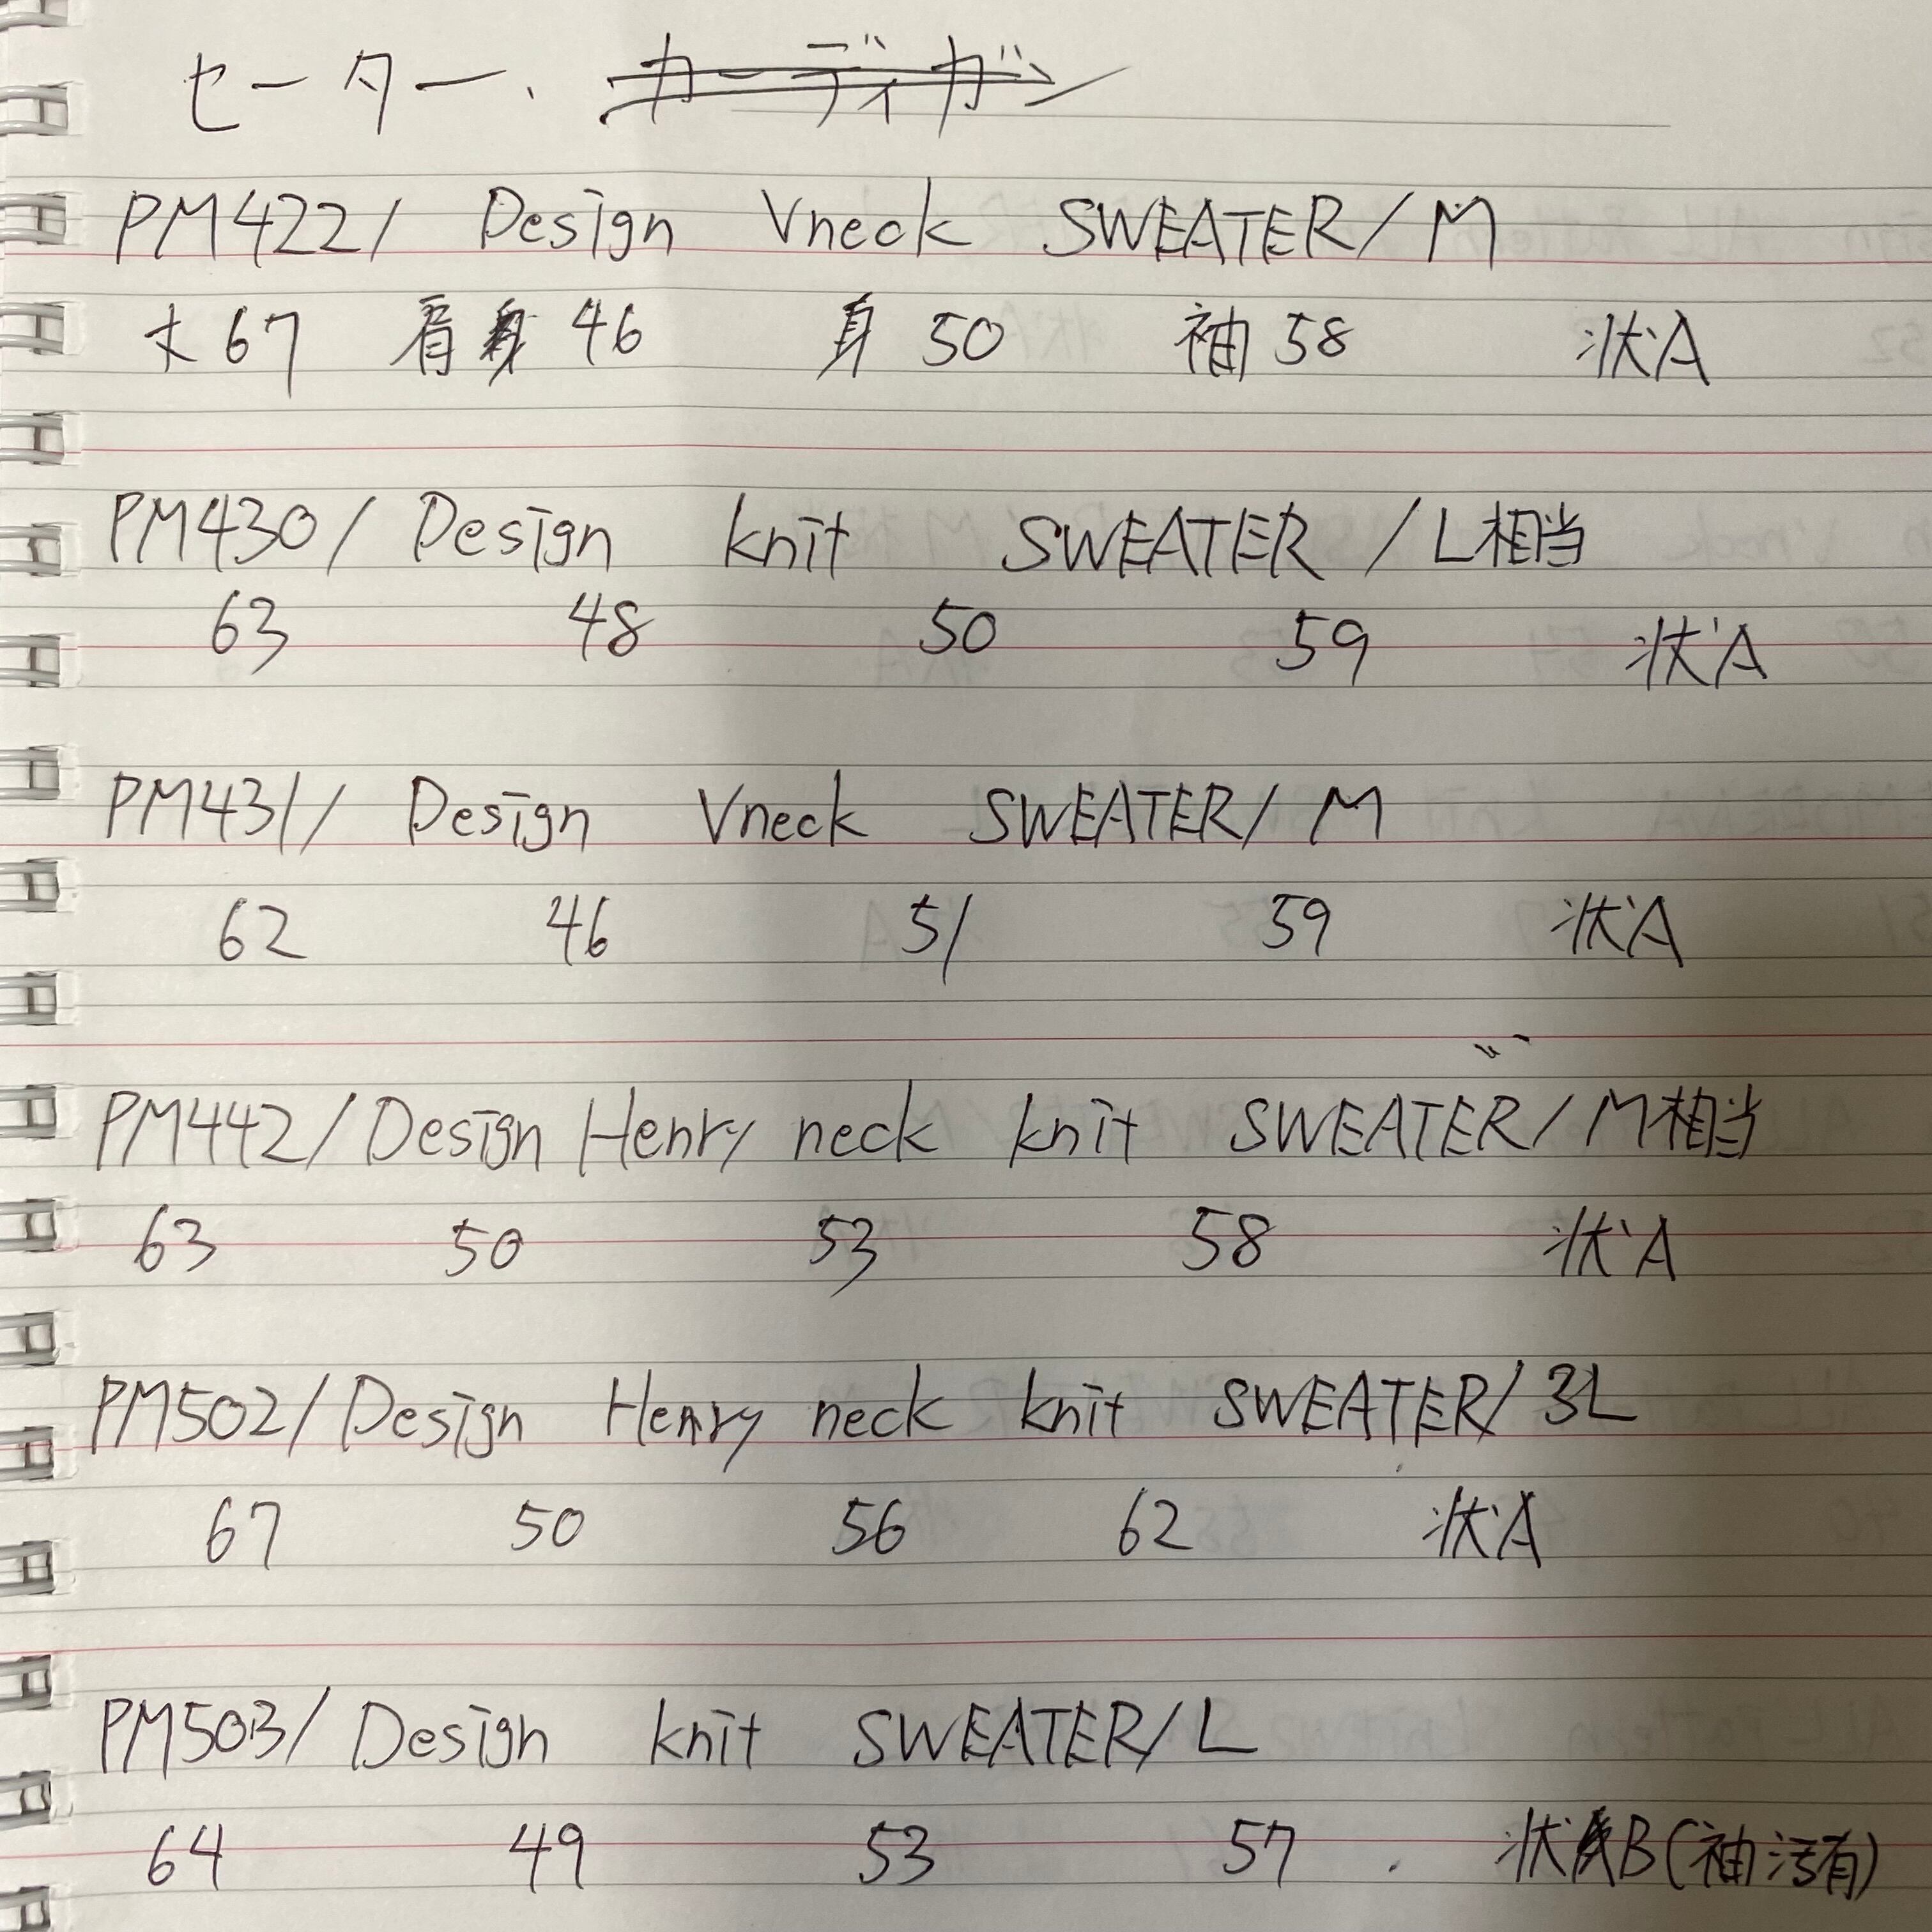 セーター、カーディガン
PM422/ Design Vneck SWEATER/M
丈67 肩 46 身 50 袖 58 状A
PM430/ Design knit SWEATER /L相当
63 48 50 59 状A
PM431/ Design Vneck SWEATER/M
62 46 51 59 状A
PM442/Design Henry neck knit SWEATER/M相当
63 50 53 58 状A
PM502/Design Henry neck knit SWEATER/3L
67 50 56 62 状A
PM503/Design knit SWEATER/L
64 49 53 57 状B(袖汚有)